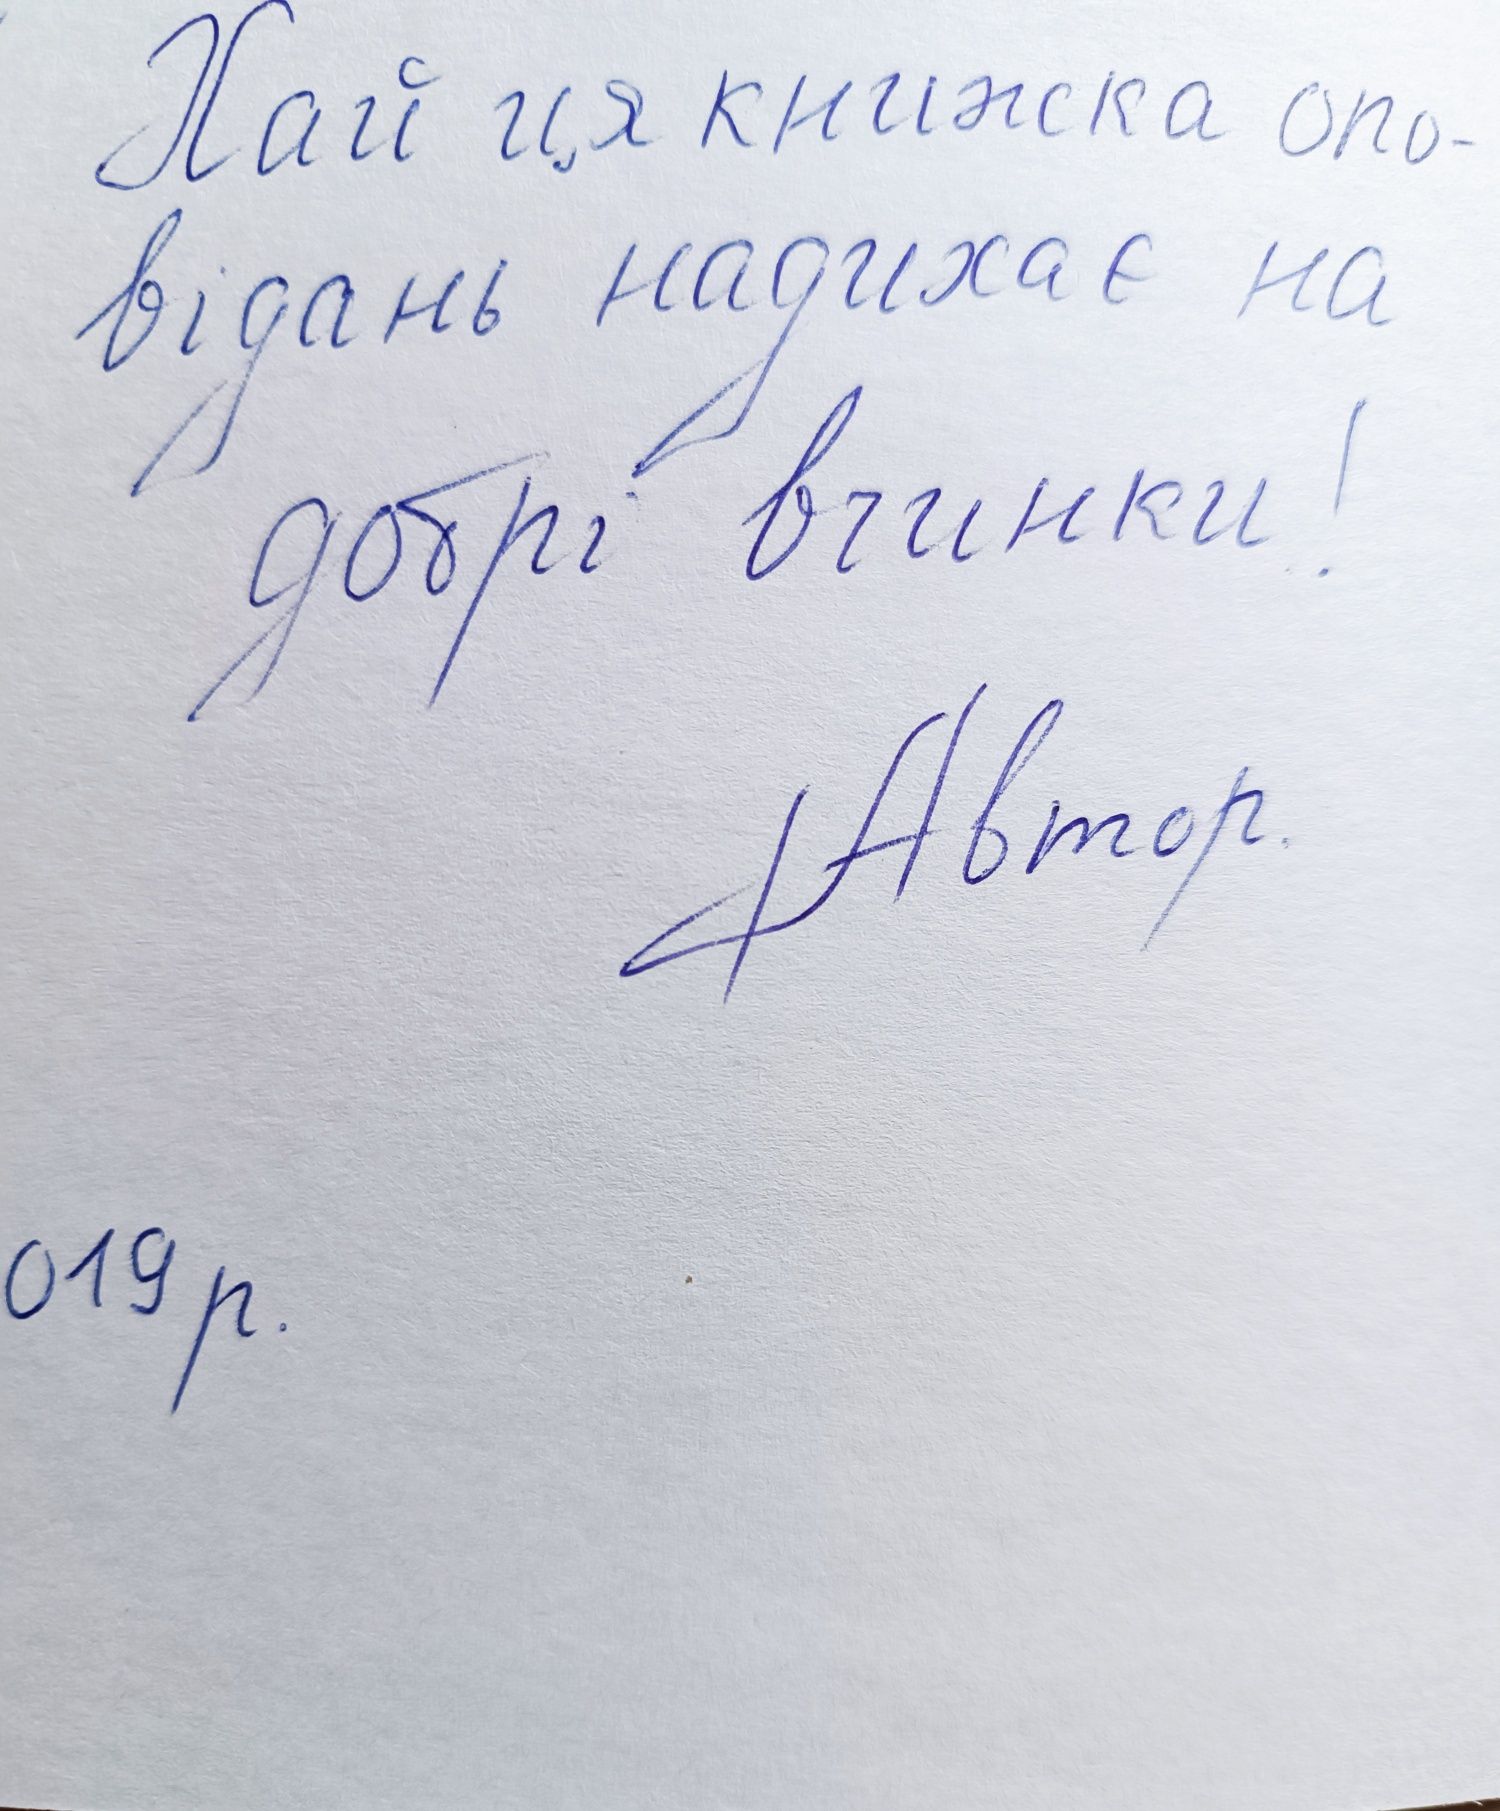 Хай ця книжка опо-
відань надихає на
добрі вчинки!
Автор.
019 р.